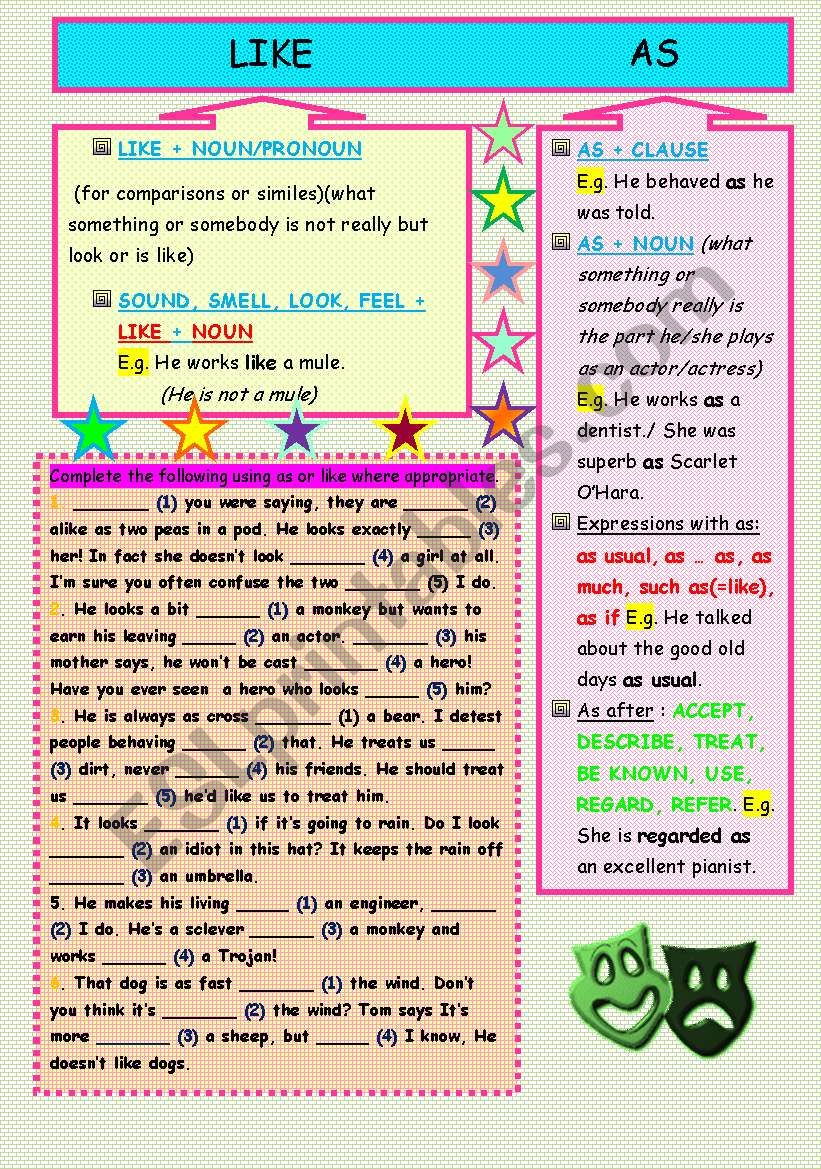 LIKE
AS
LIKE + NOUN/PRONOUN
(for comparisons or similes)(what
something or somebody is not really but
look or is like)
SOUND, SMELL, LOOK, FEEL +
LIKE + NOUN
E.g. He works like a mule.
(He is not a mule)
AS + CLAUSE
E.g. He behaved as he
was told.
AS + NOUN (what
something or
somebody really is
the part he/she plays
as an actor/actress)
E.g. He works as a
dentist./ She was
superb as Scarlet
O’Hara.
Expressions with as:
as usual, as … as, as
much, such as(=like),
as if E.g. He talked
about the good old
days as usual.
As after : ACCEPT,
DESCRIBE, TREAT,
BE KNOWN, USE,
REGARD, REFER. E.g.
She is regarded as
an excellent pianist.
Complete the following using as or like where appropriate.
1. _______ (1) you were saying, they are ______ (2)
alike as two peas in a pod. He looks exactly _____ (3)
her! In fact she doesn’t look _______ (4) a girl at all.
I’m sure you often confuse the two _______ (5) I do.
2. He looks a bit ______ (1) a monkey but wants to
earn his leaving _____ (2) an actor. _______ (3) his
mother says, he won’t be cast _______ (4) a hero!
Have you ever seen a hero who looks _____ (5) him?
3. He is always as cross _______ (1) a bear. I detest
people behaving ______ (2) that. He treats us _____
(3) dirt, never ______ (4) his friends. He should treat
us _______ (5) he’d like us to treat him.
4. It looks _______ (1) if it’s going to rain. Do I look
_______ (2) an idiot in this hat? It keeps the rain off
_______ (3) an umbrella.
5. He makes his living _____ (1) an engineer, ______
(2) I do. He’s a sclever ______ (3) a monkey and
works ______ (4) a Trojan!
6. That dog is as fast _______ (1) the wind. Don’t
you think it’s _______ (2) the wind? Tom says It’s
more _______ (3) a sheep, but _____ (4) I know, He
doesn’t like dogs.
ESLprintables.com